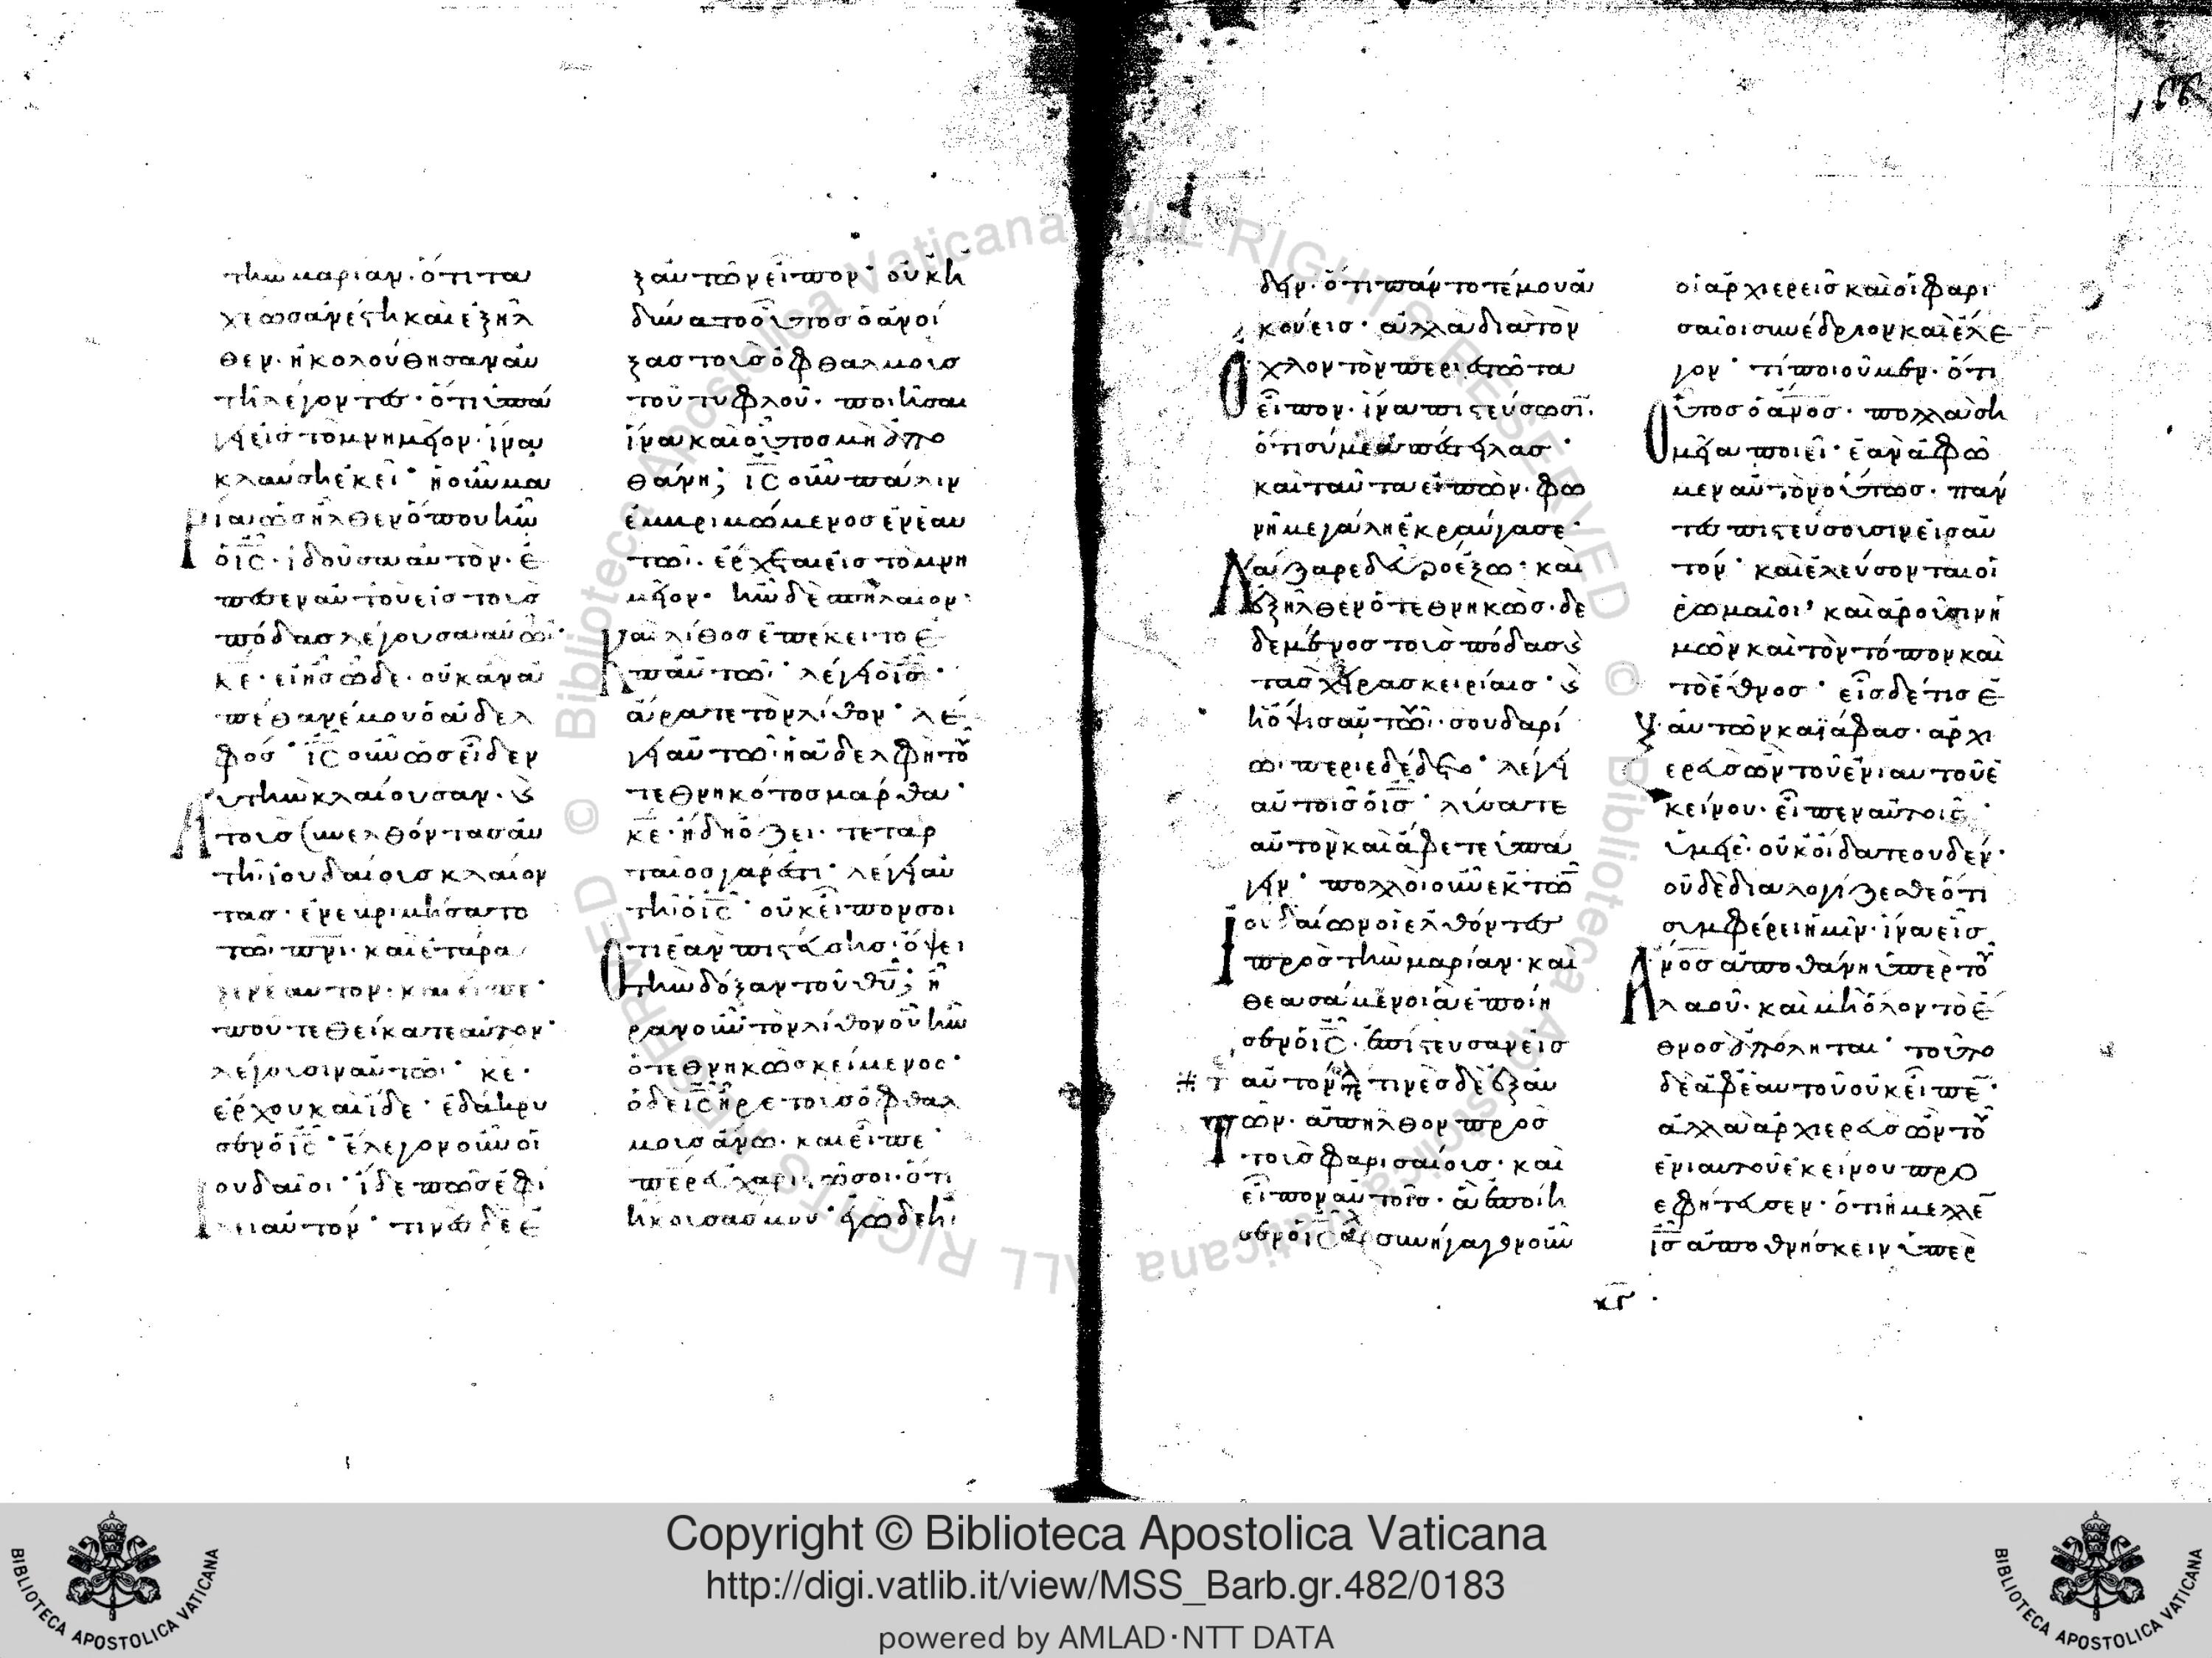 τὴν μαριαν· ὅτι τα
χέως ἀνέστη καὶ ἐξῆλ
θεν· ἠκολούθησαν αὐ
τῆ λέγοντες· ὅτι ὑπά
γει εἰς τὸ μνημεῖον· ἵνα
κλαύση ἐκεῖ· ἡ οὖν μα
ρία ὡς ἦλθεν ὅπου ἦν
ὁ ις· ἰδοῦσα αὐτὸν· ἔ
πεσεν αὐτοῦ εἰς τοὺς
πόδας λέγουσα αὐτῶ·
κε· εἰ ἦς ὧδε· οὐκ ἂν ἀ
πέθανέ μου ὁ ἀδελ
φός· ις οὖν ὡς εἶδεν
αὐτὴν κλαίουσαν· καὶ
τοὺς συνελθόντας αὐ
τῆ ἰουδαίους κλαίον
τας· ἐνεβριμήσατο
τῶ πνι· καὶ ἐτάρα
ξεν ἑαυτὸν· καὶ εἶπε·
ποῦ τεθείκατε αὐτον·
λέγουσιν αὐτῶ· κε·
ἔρχου καὶ ἴδε· ἐδάκρυ
σεν ὁ ις· ἔλεγον οὖν οἱ
ἰουδαῖοι· ἴδε πῶς ἐφί
λει αὐτόν· τινὲς δὲ ἐ
ξ αὐτῶν εἶπον· οὐκ ἠ
δύνατο οὗτος ὁ ἀνοί
ξας τοὺς ὀφθαλμοὺς
τοῦ τυφλοῦ· ποιῆσαι
ἵνα καὶ οὗτος μὴ ἀπο
θάνη; ις οὖν πάλιν
ἐμβριμώμενος ἐν ἑαυ
τῶ· ἔρχεται εἰς τὸ μνη
μεῖον· ἦν δὲ σπήλαιον·
καὶ λίθος ἐπέκειτο ἐ
π αὐτῶ· λέγει ὁ ις·
ἄρατε τὸν λίθον· λέ
γει αὐτῶ ἡ ἀδελφὴ τοῦ
τεθνηκότος μάρθα·
κε· ἤδη ὄζει· τεταρ
ταῖος γάρ ἐστι· λέγει αὐ
τῆ ὁ ις· οὐκ εἶπόν σοι
ὅτι ἐὰν πιστεύσης· ὄψει
τὴν δόξαν τοῦ θυ; ἦ
ραν οὖν τὸν λίθον οὗ ἦν
ὁ τεθνηκὼς κείμενος·
ὁ δὲ ις ἦρε τοὺς ὀφθαλ
μοὺς ἄνω· καὶ εἶπε·
πέρ εὐχαριστῶ σοι· ὅτι
ἤκουσάς μου· ἐγὼ δὲ ἤ
δειν· ὅτι πάντοτέ μου ἀ
κούεις· ἀλλὰ διὰ τὸν
ὄχλον τὸν περιεστῶτα
εἶπον· ἵνα πιστεύσωσι·
ὅτι σύ με ἀπέστειλας·
καὶ ταῦτα εἰπὼν· φω
νῆ μεγάλη ἐκραύγασε·
λάζαρε δεῦρο ἔξω· καὶ
ἐξῆλθεν ὁ τεθνηκὼς· δε
δεμένος τοὺς πόδας καὶ
τὰς χεῖρας κειρίαις· καὶ
ἡ ὄψις αὐτοῦ· σουδαρί
ω περιεδέδετο· λέγει
αὐτοῖς ὁ ις· λύσατε
αὐτὸν καὶ ἄφετε ὑπά
γειν· πολλοὶ οὖν ἐκ τῶν
ἰουδαίων οἱ ἐλθόντες
πρὸς τὴν μαρίαν· καὶ
θεασάμενοι ἃ ἐποίη
σεν ὁ ις· ἐπίστευσαν εἰς
αὐτον τινὲς δὲ ἐξ αὐ
τῶν· ἀπῆλθον πρὸς
τοὺς φαρισαίους· καὶ
εἶπον αὐτοῖς· ἃ ἐποίη
σεν ὁ ις συνήγαγον οὖν
οἱ ἀρχιερεῖς καὶ οἱ φαρι
σαῖοι συνέδριον καὶ ἔλε
γον· τί ποιοῦμεν· ὅτι
οὗτος ὁ ανος· πολλὰ ση
μεῖα ποιεῖ· ἐὰν ἀφῶ
μεν αὐτὸν οὕτως· πάν
τες πιστεύσουσιν εἰς αὐ
τόν· καὶ ἐλεύσονται οἱ
ῥωμαῖοι· καὶ ἀροῦσιν ἡ
μῶν καὶ τὸν τόπον καὶ
τὸ ἔθνος· εἷς δέ τις ἐ
ξ αὐτῶν καϊάφας· ἀρχι
ερεὺς ὢν τοῦ ἐνιαυτοῦ ἐ
κείνου· εἶπεν αὐτοῖς·
ὑμεῖς· οὐκ οἴδατε οὐδέν·
οὐδὲ διαλογίζεσθε ὅτι
συμφέρει ἡμῖν· ἵνα εἷς
ανος ἀποθάνη ὑπὲρ τοῦ
λαοῦ· καὶ μὴ ὅλον τὸ ἔ
θνος ἀπόληται· τοῦτο
δὲ ἀφ ἑαυτοῦ οὐκ εἶπεν·
ἀλλὰ ἀρχιερεὺς ὢν τοῦ
ἐνιαυτοῦ ἐκείνου προ
εφήτευσεν· ὅτι ἤμελλεν
ις ἀποθνήσκειν ὑπὲρ
Copyright © Biblioteca Apostolica Vaticana
http://digi.vatlib.it/view/MSS_Barb.gr.482/0183
powered by AMLAD·NTT DATA
BIBLIOTECA APOSTOLICA VATICANA
BIBLIOTECA APOSTOLICA VATICANA